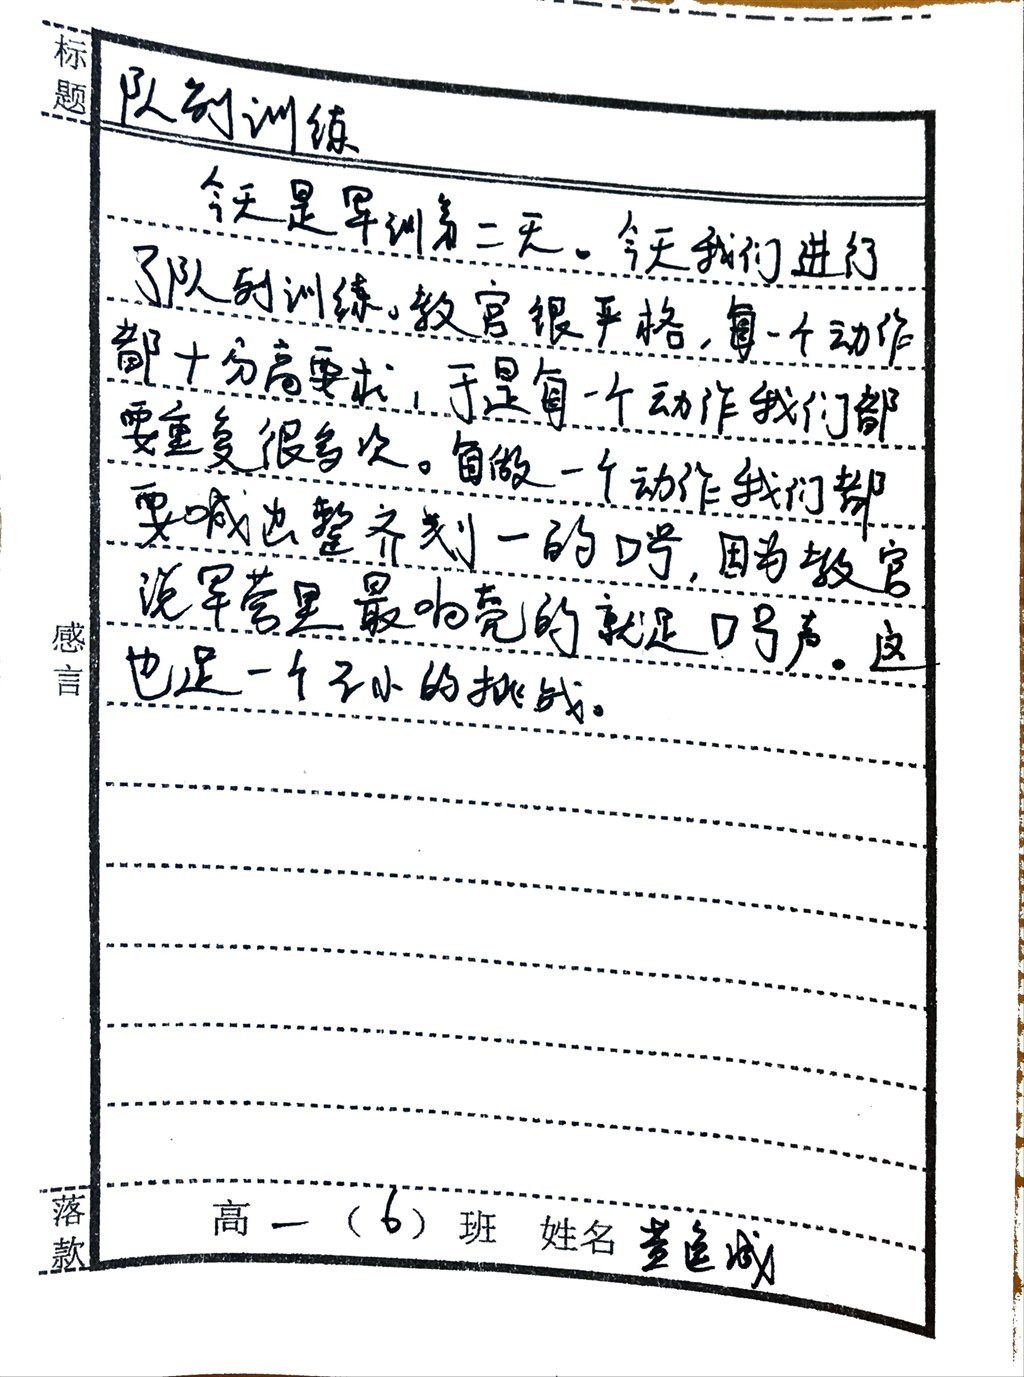 标题
队列训练
今天是军训第二天。今天我们进行
了队列训练。教官很严格，每一个动作
都十分高要求，于是每一个动作我们都
要重复很多次。每做一个动作我们都
要喊出整齐划一的口号，因为教官
说军营里最响亮的就是口号声。这
也是一个不小的挑战。
感言
落款
高一（6）班 姓名 黄